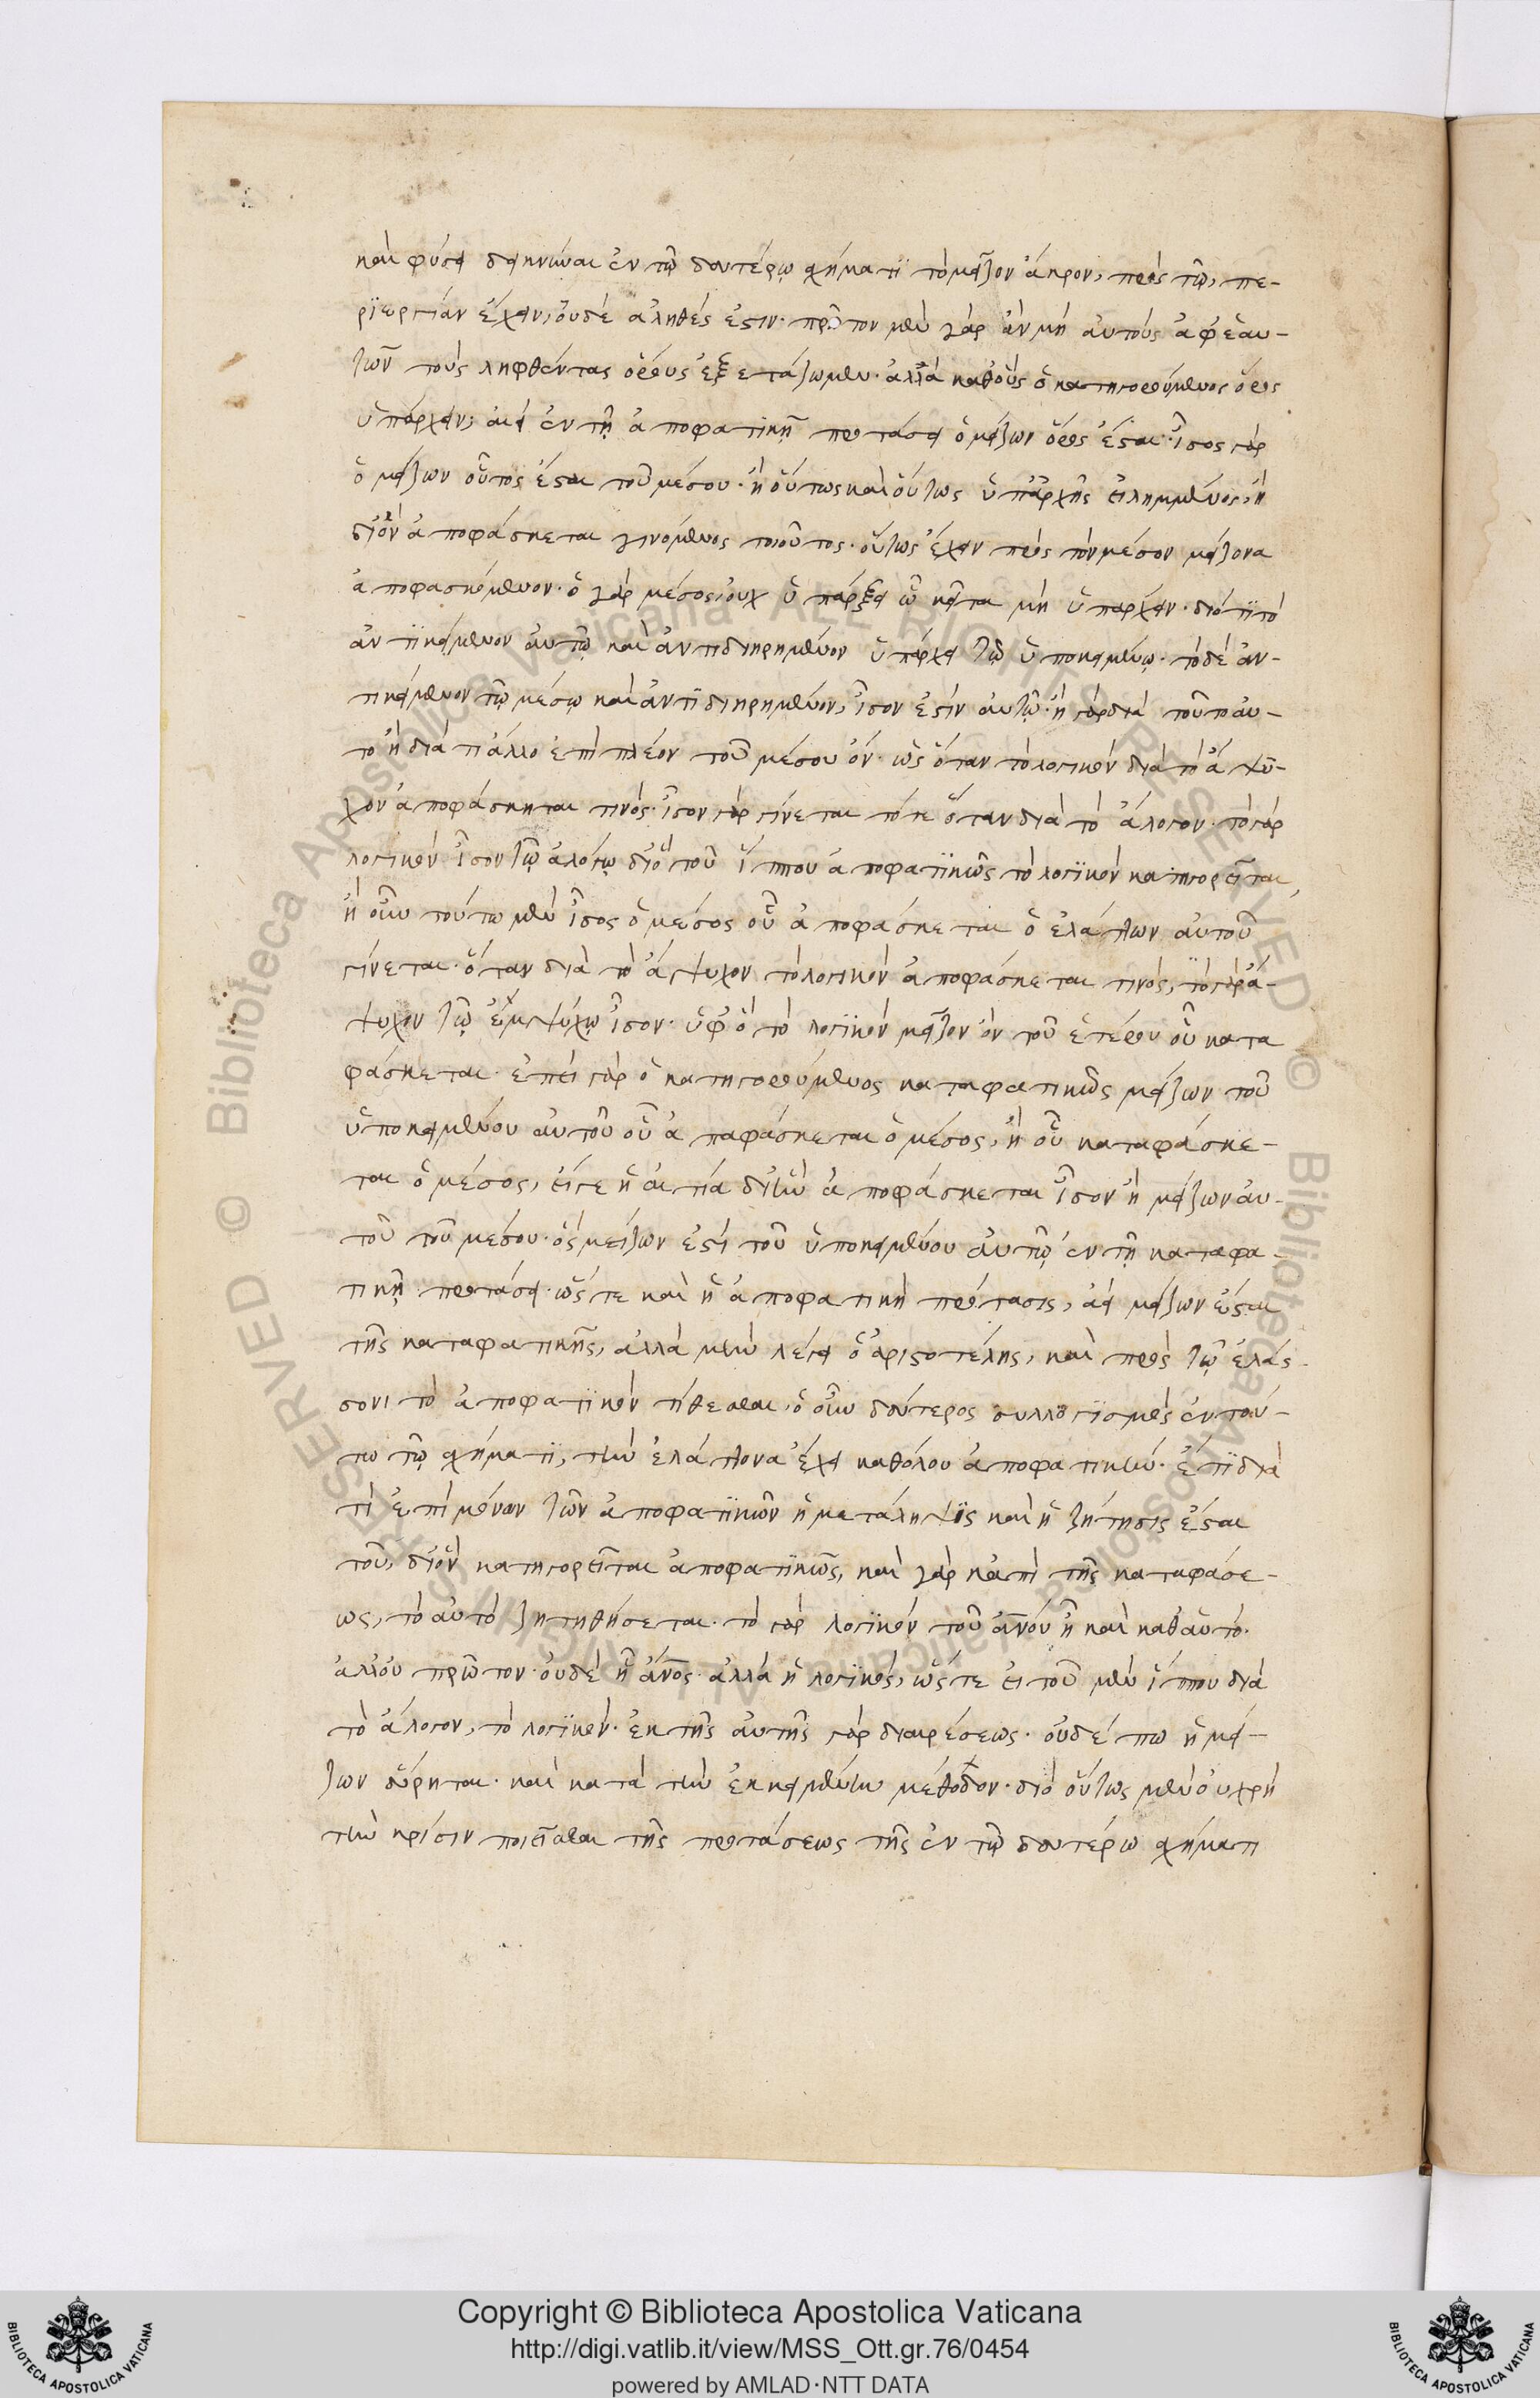 καὶ φύσει δεικνῦναι ἐν τῷ δευτέρῳ σχήματι τὸ μεῖζον ἄκρον, πρὸς τῷ, πε-
ριεργίαν ἔχειν, οὐδὲ ἀληθές ἐστιν. πρῶτον μὲν γὰρ ἂν μὴ αὐτοὺς ἀφ' ἑαυ-
τῶν τοὺς ληφθέντας ὅρους ἐξετάζωμεν. ἀλλὰ καθ' οὓς ὁ κατηγορούμενος ὅρος
ὑπάρχειν, ἀεὶ ἐν τῇ ἀποφατικῇ προτάσει ὁ μείζων ὅρος ἔσται. ἴσος γὰρ
ὁ μείζων οὗτος ἔσται τοῦ μέσου. ἢ οὕτως καὶ οὕτως ὑπάρχῃς εἰλημμένος, ἢ
δι' ὃν ἀποφάσκεται γινόμενος τοιοῦτος. οὕτως ἔχειν πρὸς τὸν μέσον μείζονα
ἀποφασκόμενον. ὁ γὰρ μέσος, οὐχ ὑπάρξει ᾧ κεῖται μὴ ὑπάρχειν. διότι τὸ
ἀντικείμενον αὐτῷ καὶ ἀντιδιῃρημένον ὑπάρχει τῷ ὑποκειμένῳ. τὸ δὲ ἀν-
τικείμενον τῷ μέσῳ καὶ ἀντιδιῃρημένον, ἴσον ἐστὶν αὐτῷ. ἢ γὰρ διὰ τοῦτο αὐ-
τὸ ἢ διά τι ἄλλο ἐπὶ πλέον τοῦ μέσου ὄν. ὡς ὅταν τὸ λογικὸν διὰ τὸ ἄψυ-
χον ἀποφάσκηται τινός. ἴσον γὰρ γίνεται τότε ὅταν διὰ τὸ ἄλογον. τὸ γὰρ
λογικὸν ἴσον τῷ ἀλόγῳ δι' ὃ τοῦ ἵππου ἀποφατικῶς τὸ λογικὸν κατηγορεῖται,
ἢ οὖν τούτῳ μὲν ἴσος ὁ μέσος οὗ ἀποφάσκεται ὁ ἐλάττων αὐτοῦ
γίνεται. ὅταν διὰ τὸ ἄψυχον τὸ λογικὸν ἀποφάσκεται τινός, τὸ γὰρ ἄ-
ψυχον τῷ ἐμψύχῳ ἴσον. ὑφ' ὃ τὸ λογικὸν μεῖζον ὂν τοῦ ἑτέρου οὗ κατα
φάσκεται. ἐπεὶ γὰρ ὁ κατηγορούμενος καταφατικῶς μείζων τοῦ
ὑποκειμένου αὐτοῦ οὗ ἀπαφάσκεται ὁ μέσος, ἢ οὗ καταφάσκε-
ται ὁ μέσος, εἴτε ἡ αἰτία δι' ἣν ἀποφάσκεται ἴσον ἢ μείζων αὐ-
τοῦ τοῦ μέσου. ὃς μείζων ἐστὶ τοῦ ὑποκειμένου αὐτῷ ἐν τῇ καταφα-
τικῇ προτάσει. ὥστε καὶ ἡ ἀποφατικὴ πρότασις, ἀεὶ μείζων ἔσται
τῆς καταφατικῆς, ἀλλὰ μὴν λέγει ὁ ἀριστοτέλης, καὶ πρὸς τῷ ἐλάσ-
σονι τὸ ἀποφατικὸν τίθεσθαι. ὁ οὖν δεύτερος συλλογισμὸς ἐν τού-
τῳ τῷ σχήματι, τὴν ἐλάττονα ἔχει καθόλου ἀποφατικήν. ἔτι διὰ
τί ἐπὶ μόνων τῶν ἀποφατικῶν ἡ μετάληψις καὶ ἡ ζήτησις ἔσται
τοῦ, δι' ὃν κατηγορεῖται ἀποφατικῶς, καὶ γὰρ κἀπὶ τῆς καταφάσε-
ως, τὸ αὐτὸ ζητηθήσεται. τὸ γὰρ λογικὸν τοῦ ἀνου ἢ καὶ καθ' αὑτό.
ἀλλ' οὐ πρῶτον. οὐδὲ ᾗ ἄνος. ἀλλὰ ᾗ λογικός, ὥστε εἰ τοῦ μὲν ἵππου διὰ
τὸ ἄλογον, τὸ λογικόν. ἐκ τῆς αὐτῆς γὰρ διαιρέσεως. οὐδέπω ἡ μεί-
ζων εὕρηται. καὶ κατὰ τὴν ἐκκειμένην μέθοδον. διὸ οὕτως μὲν οὐ χρὴ
τὴν κρίσιν ποιεῖσθαι τῆς προτάσεως τῆς ἐν τῷ δευτέρῳ σχήματι
Copyright © Biblioteca Apostolica Vaticana
http://digi.vatlib.it/view/MSS_Ott.gr.76/0454
powered by AMLAD·NTT DATA
BIBLIOTECA APOSTOLICA VATICANA
BIBLIOTECA APOSTOLICA VATICANA